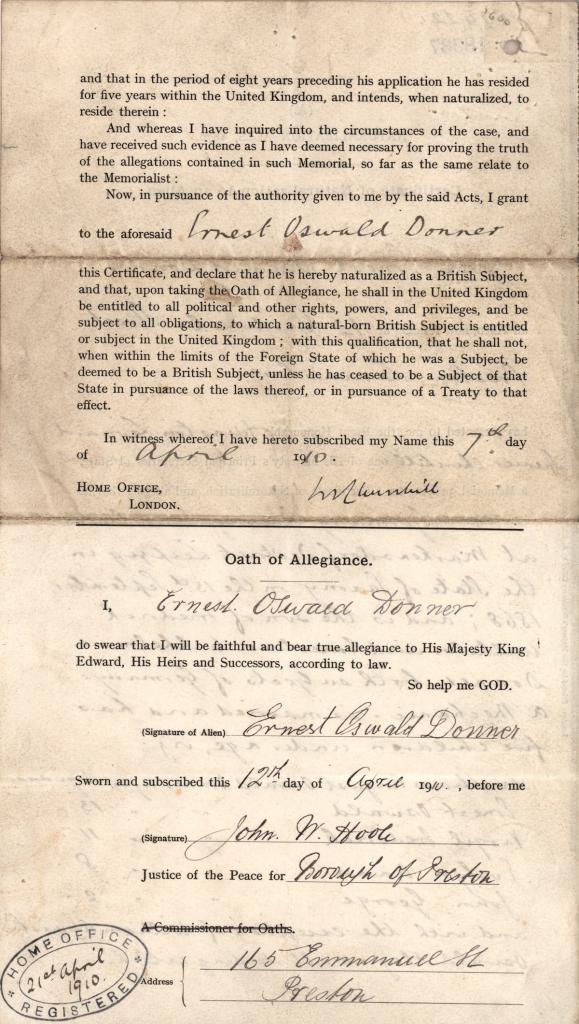 and that in the period of eight years preceding his application he has resided
for five years within the United Kingdom, and intends, when naturalized, to
reside therein :
And whereas I have inquired into the circumstances of the case, and
have received such evidence as I have deemed necessary for proving the truth
of the allegations contained in such Memorial, so far as the same relate to
the Memorialist :
Now, in pursuance of the authority given to me by the said Acts, I grant
to the aforesaid Ernest Oswald Donner
this Certificate, and declare that he is hereby naturalized as a British Subject,
and that, upon taking the Oath of Allegiance, he shall in the United Kingdom
be entitled to all political and other rights, powers, and privileges, and be
subject to all obligations, to which a natural-born British Subject is entitled
or subject in the United Kingdom ; with this qualification, that he shall not,
when within the limits of the Foreign State of which he was a Subject, be
deemed to be a British Subject, unless he has ceased to be a Subject of that
State in pursuance of the laws thereof, or in pursuance of a Treaty to that
effect.
In witness whereof I have hereto subscribed my Name this 7th day
of April 1910.
HOME OFFICE,
LONDON.
WSChurchill
Oath of Allegiance.
I, Ernest Oswald Donner
do swear that I will be faithful and bear true allegiance to His Majesty King
Edward, His Heirs and Successors, according to law.
So help me GOD.
(Signature of Alien) Ernest Oswald Donner
Sworn and subscribed this 12th day of April 1910., before me
(Signature) John. W. Hoole
Justice of the Peace for Borough of Preston
A Commissioner for Oaths.
Address 165 Emmanuel St
Preston
HOME OFFICE
21st April
1910.
REGISTERED